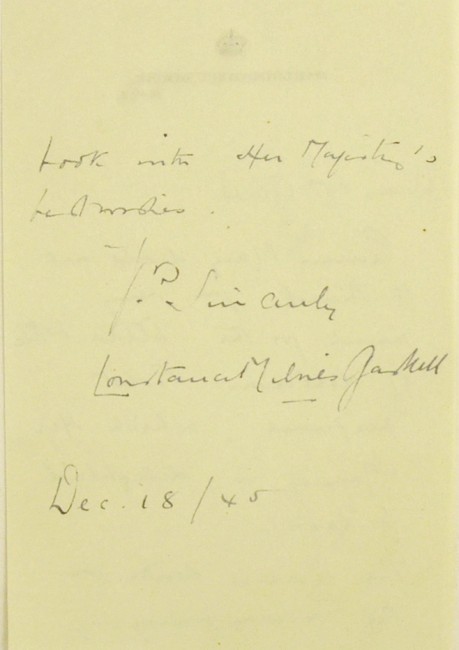 book with Her Majesty's
best wishes.
Yrs Sincerely
Constance Milnes Gaskell
Dec. 18/45